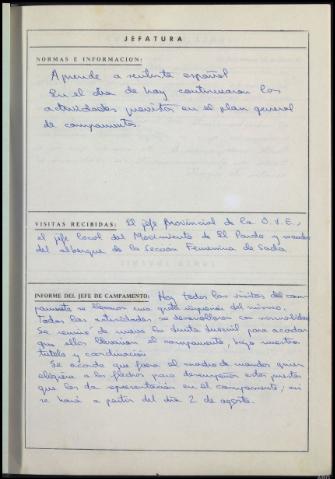 JEFATURA
NORMAS E INFORMACION:
Aprende a sentirte español
En el dia de hoy continuaron las
actividades previstas en el plan general
de campamentos
VISITAS RECIBIDAS: El jefe Provincial de la O.J.E.,
el jefe local del Movimiento de El Pardo y mandos
del albergue de la Sección Femenina de Sada
INFORME DEL JEFE DE CAMPAMENTO: Hoy todas las visitas del cam-
pamento se llevaron una grata impresión del mismo.
Todas las actividades se desarrollaron con normalidad
Se reunió de nuevo la Junta Juvenil para acordar
que ellos llevarian el campamento, bajo nuestra
tutela y coordinación
Se acordó que fuera el mando de mandos quien
eligiera a los flechas para desempeñar estos puestos
que les da representación en el campamento;
se hará a partir del dia 2 de agosto.